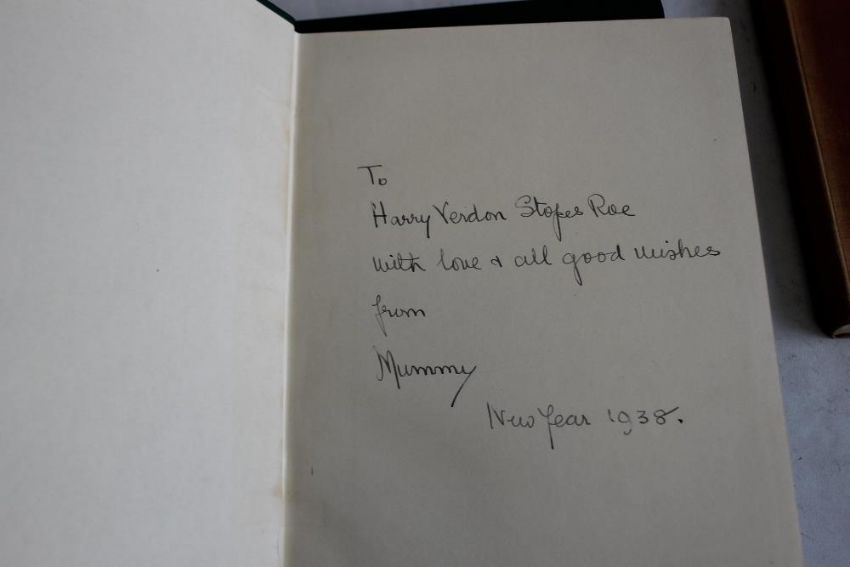 To
Harry Verdon Stopes Roe
with love & all good wishes
from
Mummy
New Year 1938.